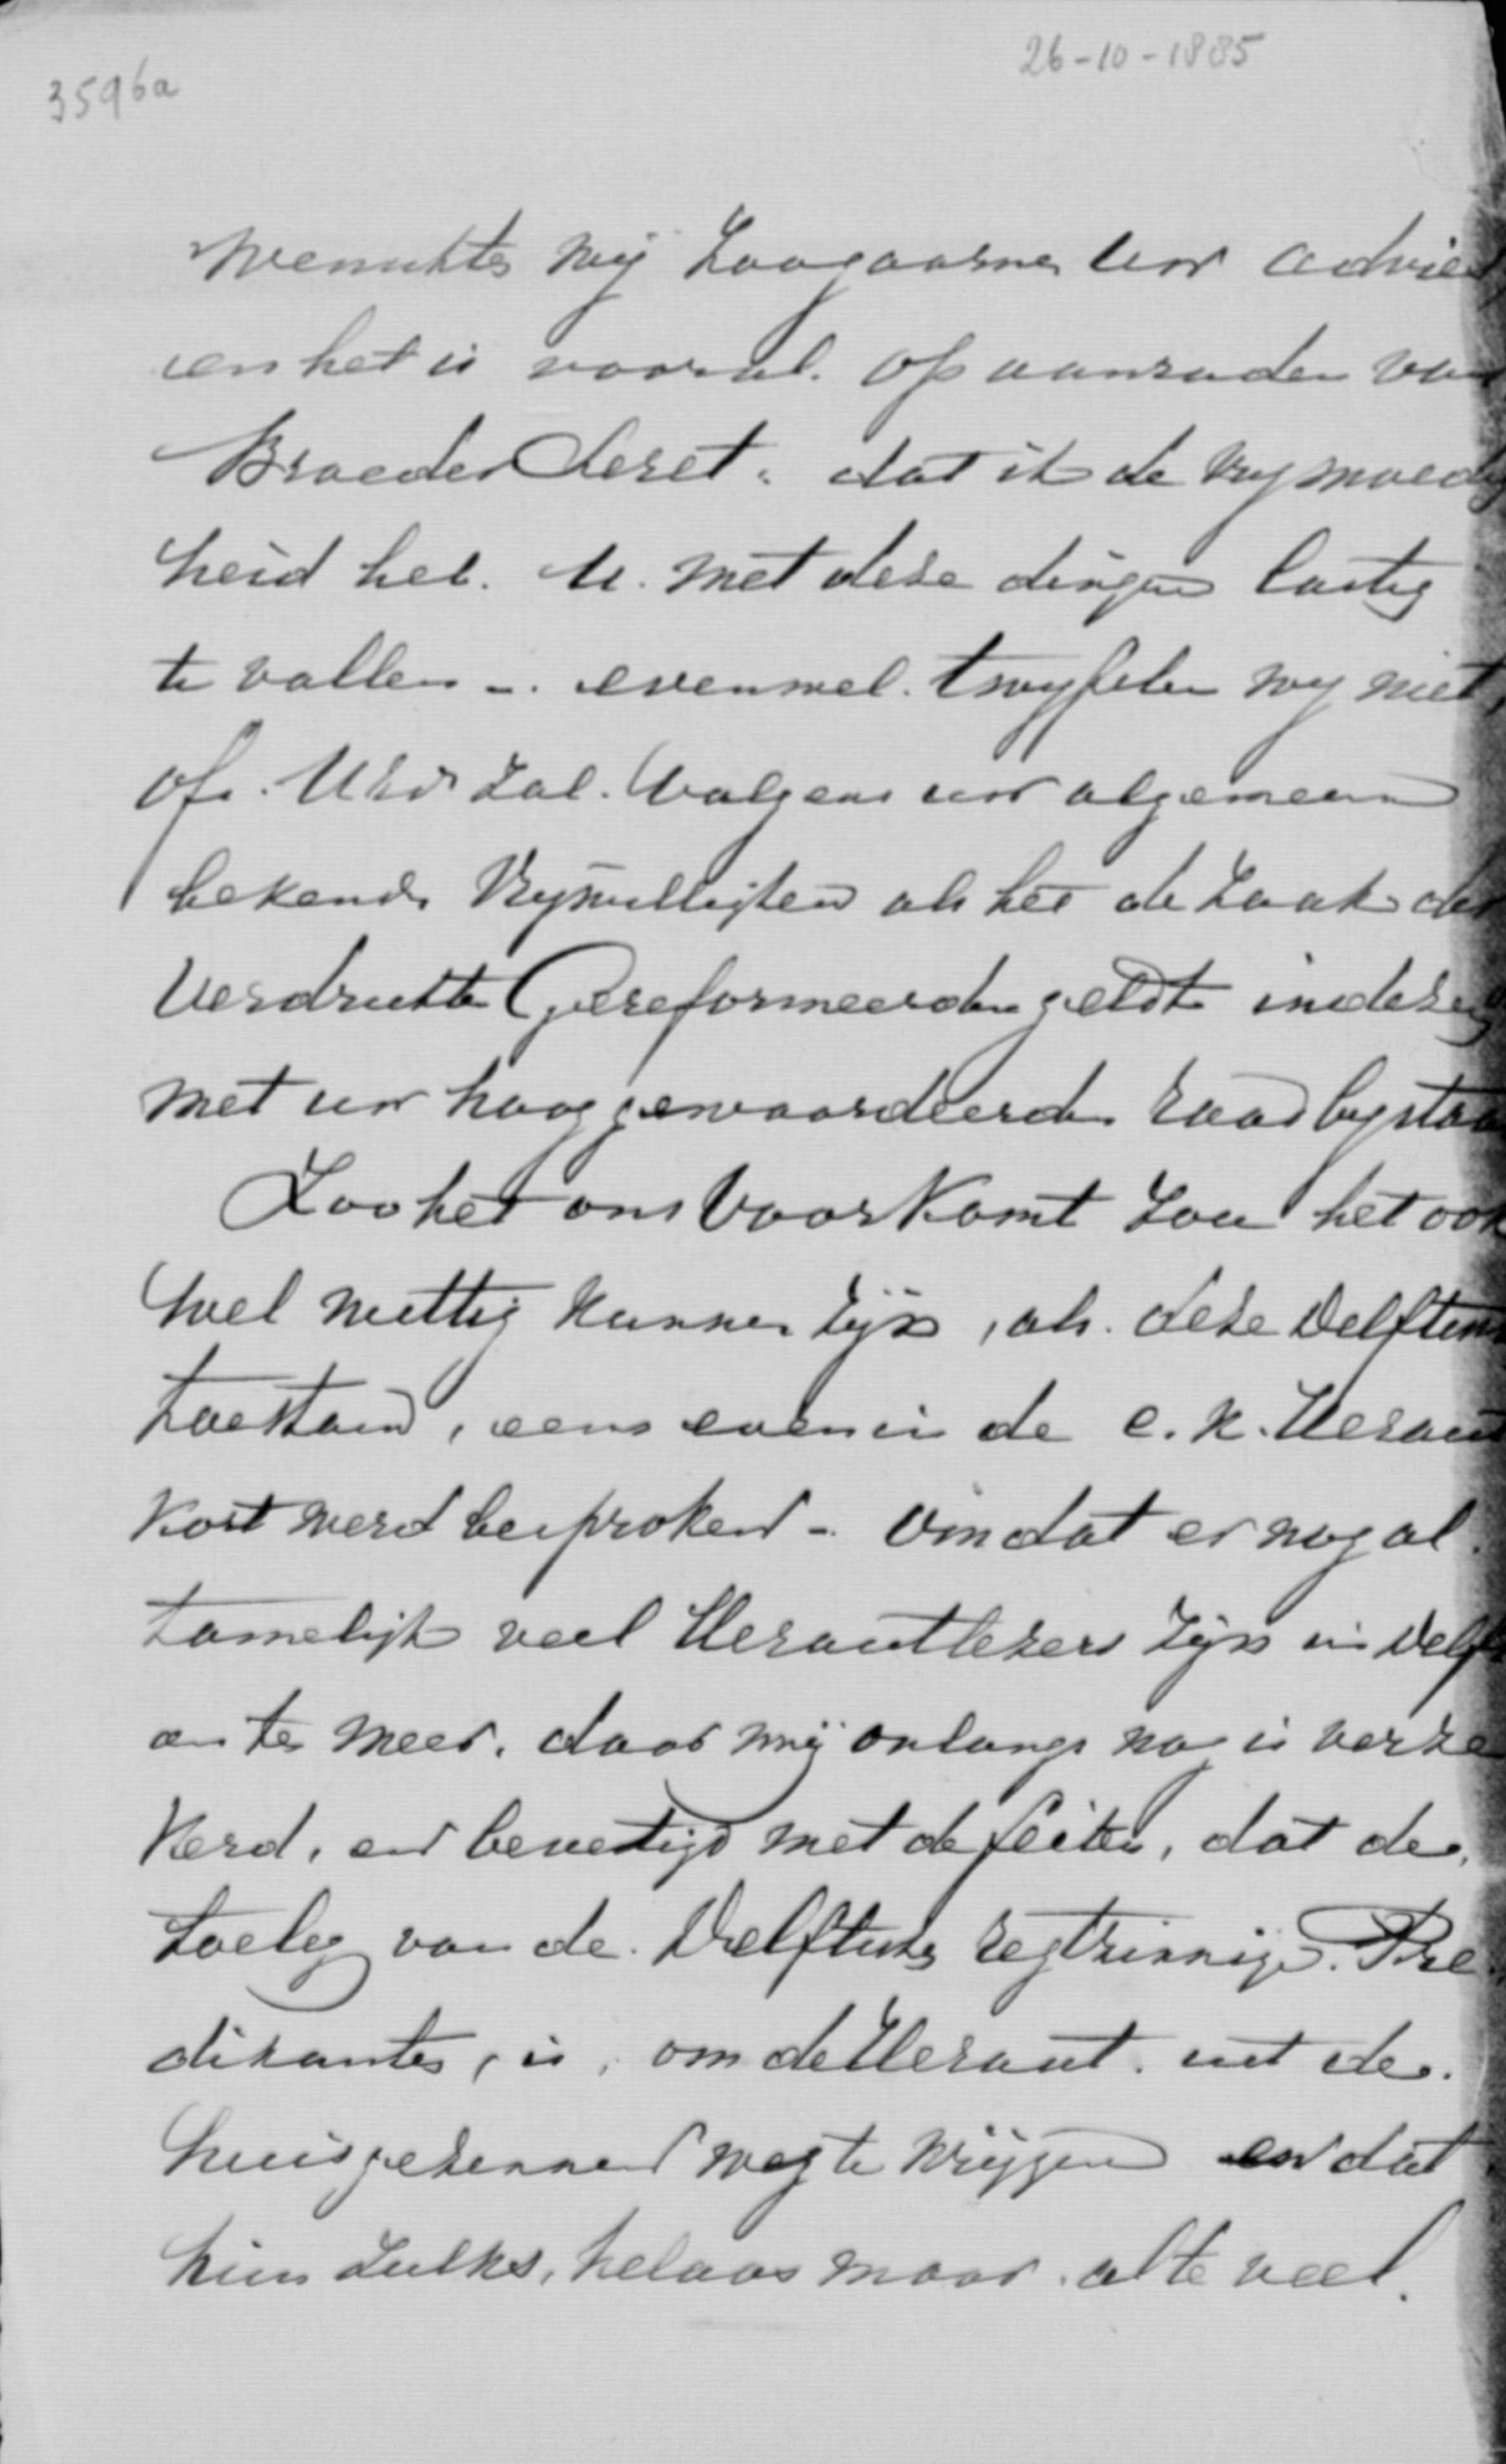 26-10-1885
3596a
wenschte wij Zoogaarne uw advies
en het is vooral. op aanraden van
Broeder Cleret. dat ik de vrymoedig
heid heb. U. met deze dingen lastig
te vallen -. evenwel. twyfelen wy niet,
of. UEd zal. volgens uw algemeen
bekende Vrywilligheid als het de Zaak der
Verdrukte Gereformeerden geldt in deze
met uw hooggewaardeerde raad bystaan
Zoo het ons voorkomt Zou het ook
wel nuttig kunnen Zijn, als. deze Delftsen
toestand, eens even in de e.k. Heraut
kort werd besproken -. omdat er nog al.
tamelijk veel Herautlezers Zijn in Delft
en te meer. daar mij onlangs nog is verze
kerd. en bevestigd met de feiten, dat de.
toeleg van de. Delftsche regtzinnige. Pre.
dikanten, is, om de Heraut. uit de.
huisgezinnen weg te krijgen en dat
hun Zulks, helaas maar. al te veel.